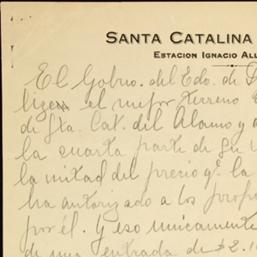 SANTA CATALINA
ESTACION IGNACIO ALL
El Gobno. del Edo. de
el mejor terreno
de Sta. Cat. del Alamo y a
la cuarta parte de su v
la mitad del precio qe. la
ha autorizado a los prop
por él. Y eso unicamente
de una entrada de $2.10